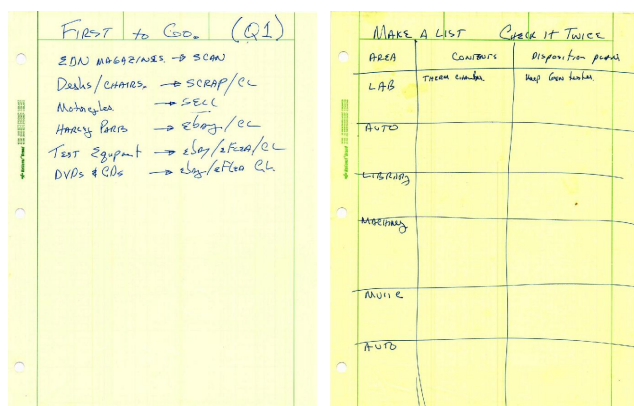 FIRST to GO. (Q1)
EDN MAGAZINES. → SCAN
Desks/CHAIRS. → SCRAP/CL
Motorcycles → SELL
HARLEY PARTS → ebay/CL
TEST Equipment → ebay/eFLEA/CL
DVDs & CDs → ebay/eFLEA CL.
MAKE A LIST CHECK IT TWICE
AREA CONTENTS Disposition plans
LAB THERM chamber Keep
AUTO
LIBRARY
MACHINERY
MUSIC
AUTO